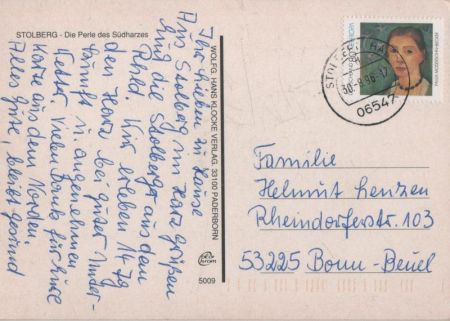 STOLBERG - Die Perle des Südharzes
Ihr Lieben zu Hause
Aus Stolberg im Harz grüßen
die Stolberger aus dem
Rhld. Wir erleben 14 Tg
den Harz bei guter Unter-
kunft u. angenehmen
Wetter. Vielen Dank für Eure
Karte aus dem Norden.
Alles Gute, bleibt gesund
WOLFG. HANS KLOCKE VERLAG, 33100 PADERBORN
5009
STOLBERG (HARZ)
30.-8.96-17
06547
PAULA MODERSOHN-BECKER
Familie
Helmut Lenzen
Rheindorferstr. 103
53225 Bonn-Beuel